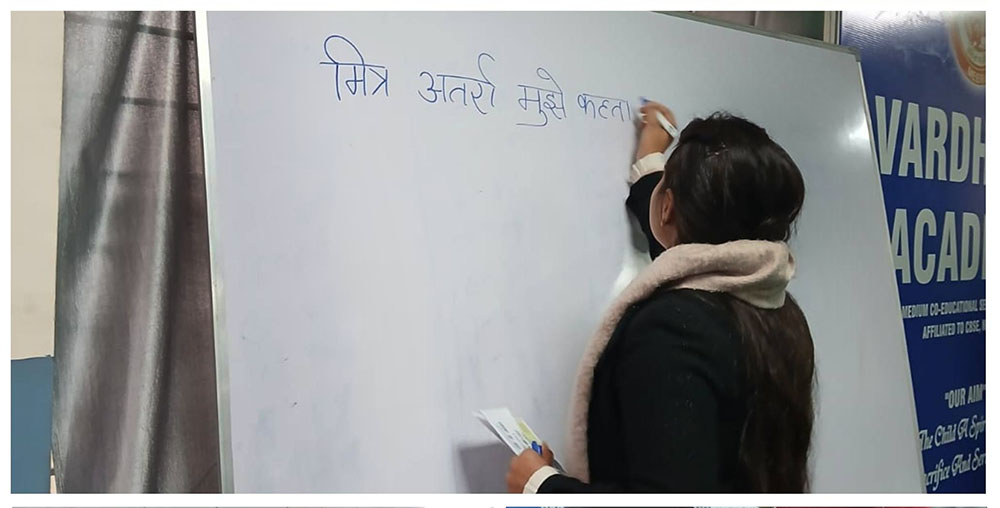 मित्र अतर्रा मुझे कहता
VARDH
ACAD
MEDIUM CO-EDUCATIONAL SE
AFFILIATED TO CBSE, N
"OUR AIM"
The Child A Spir
acrifice And Ser